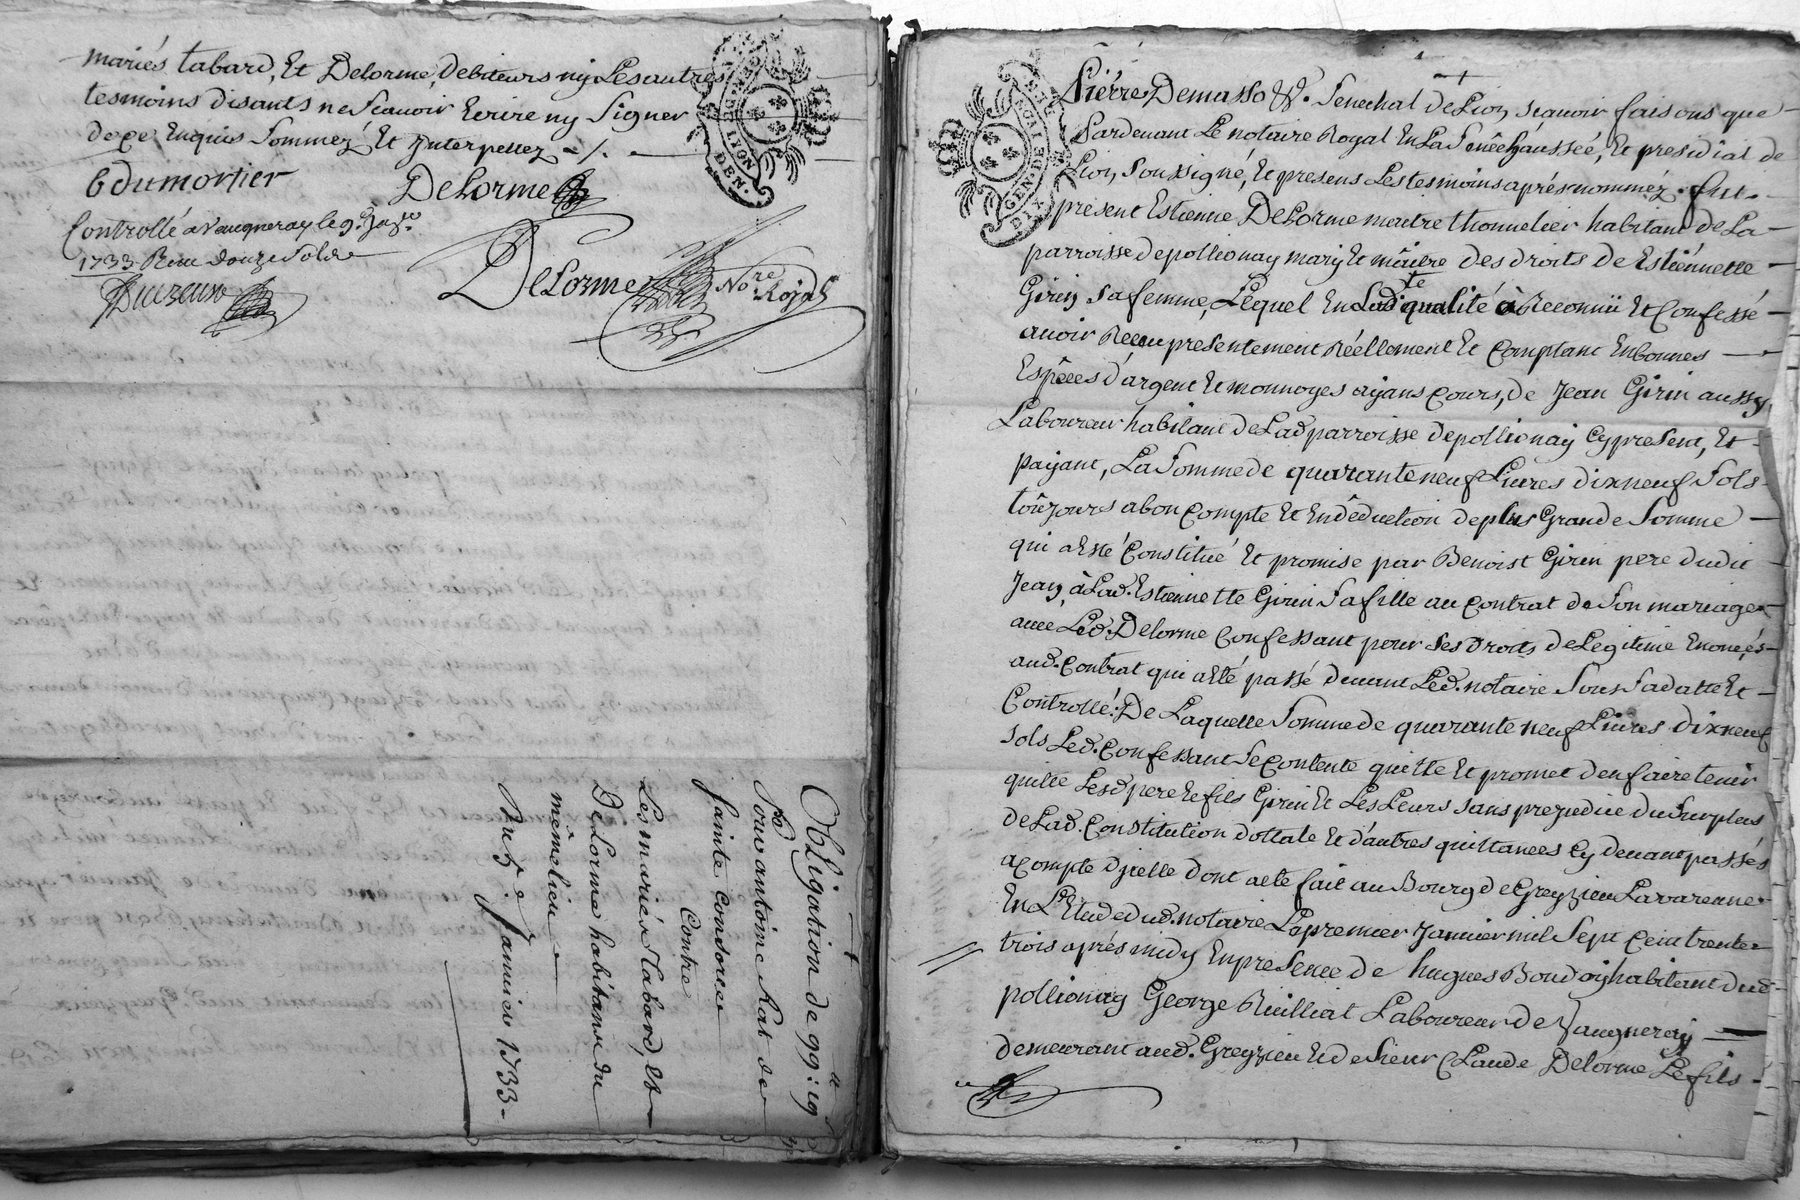 mariés tabard, Et Delorme, Debiteurs ny Les autres
tesmoins disants ne Scavoir Ecrire ny Signer
de ce Enquis Sommez Et Interpellez -/.
bdumortier
DeLorme
Controllé a Vaugneray le 9e Janer
1733 Reçu douze Sols
DeLorme Nore Royal
GEN. DE LYON
DIX DEN.
Obligation de 99:ll 19s
Pour antoine Rat de
Sainte Consorce
Contre
Les mariés Tabard, et
DeLorme habitans du
même lieu
Du 5e Janvier 1733
Pierre Demasso &c. Senechal de Lion, sçavoir faisons que
Pardevant Le notaire Royal En La Senêcháussée, Et presidial de
Lion, Soussigné, Et presens Les tesmoins aprés nomméz. fut
present Estienne DeLorme maitre thonnelier habitant de La
parroisse de pollionay mary Et maitre des droits de Estiennette
Girin Sa femme, Lequel En Ladte qualité à Reconnü Et Confessé
avoir Receu presentement Réellement Et Comptant En bonnes
Espêces d'argent Et monnoyes ayans Cours, de Jean Girin aussy
Laboureur habitant de Lad parroisse de pollionay Cy present, Et
payant, La Somme de quarante neuf Livres dix neuf Sols
toûjours a bon Compte Et En dêduction de plus Grande Somme
qui a Esté Constitué Et promise par Benoist Girin pere dudit
Jean, à Lad. Estiennette Girin Sa fille au Contrat de Son mariage
avec Led. Delorme Confessant pour Ses Droits de Legitime Enoncés
aud. Contrat qui a Eté passé devant Led. notaire Sous Sa datte Et
Controllé: De Laquelle Somme de quarante neuf Livres dix neuf
Sols Led. Confessant Se Contente quitte Et promet d'en faire tenir
quitte Lesd pere Et fils Girin Et Les Leurs sans prejudice du Surplus
de Lad. Constitution dottale Et d'autres quittances Cy devant passés
a Compte d'jcelle dont acte fait au Bourg de Greyzieu Lavarenne
En L'Etude dud. notaire Le premier Janvier mil Sept Cent trente
trois aprés midy En presence de hugues Bondoy habitant dud
pollionay George Ruilliat Laboureur de Vaugneray
demeurant aud. Greyzieu Et de Sieur Claude Delorme Le fils
GEN. DE LYON
DIX DEN.